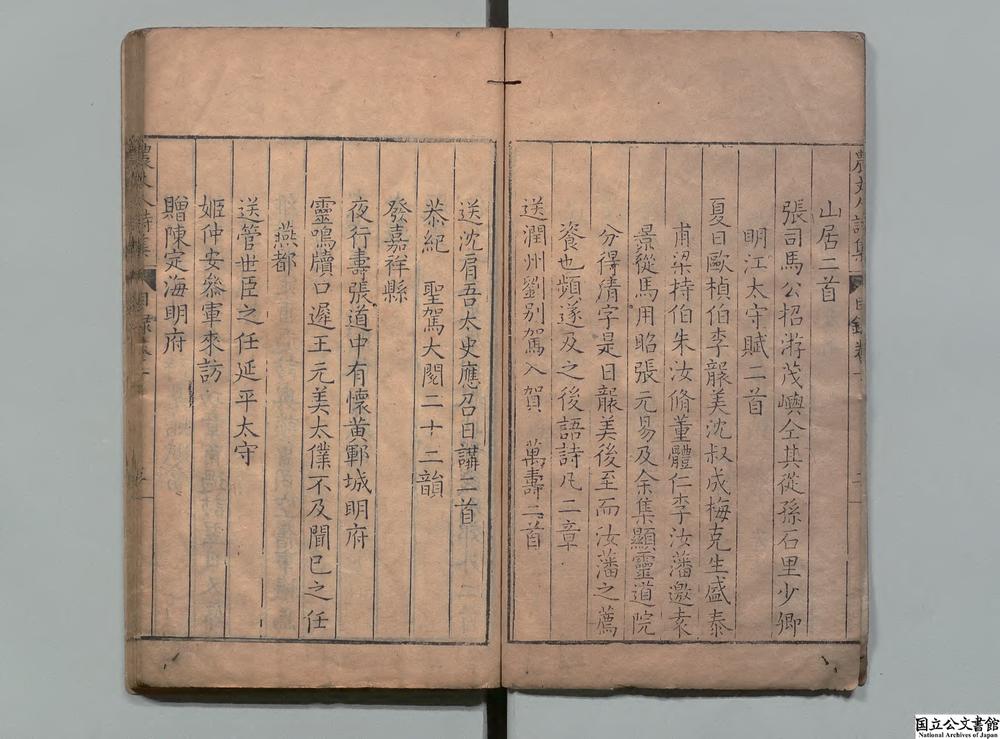 山居二首
張司馬公招游茂嶼仝其從孫石里少卿
明江太守賦二首
夏日歐楨伯李龎美沈叔成梅克生盛泰
甫梁持伯朱汝脩董體仁李汝藩邀袁
景從馬用昭張元易及余集顯靈道院
分得清字是日龎美後至而汝藩之薦
瓷也頻遂及之後語詩凡二章
送潤州劉别駕入賀　萬壽二首
送沈肩吾太史應召日講二首
恭紀　聖駕大閱二十二韻
發嘉祥縣
夜行壽張道中有懷黄鄆城明府
靈鳴牘口遲王元美太僕不及聞已之任
燕都
送管世臣之任延平太守
姬仲安叅軍來訪
贈陳定海明府
国立公文書館
National Archives of Japan